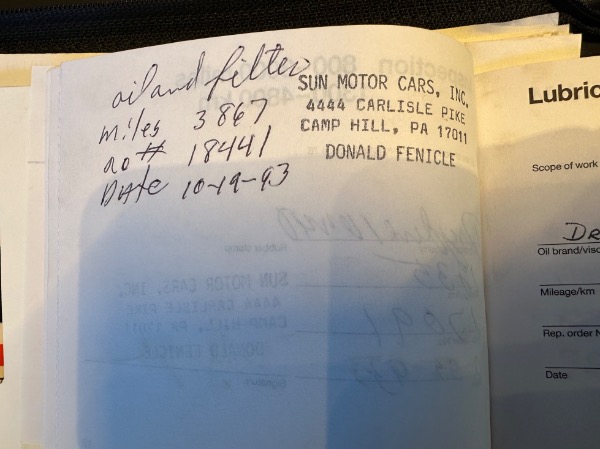 oil and filter
miles 3867
no # 18441
Date 10-19-93
SUN MOTOR CARS, INC.
4444 CARLISLE PIKE
CAMP HILL, PA 17011
DONALD FENICLE
Lubric
Scope of work
DR
Oil brand/visc
Mileage/km
Rep. order N
Date